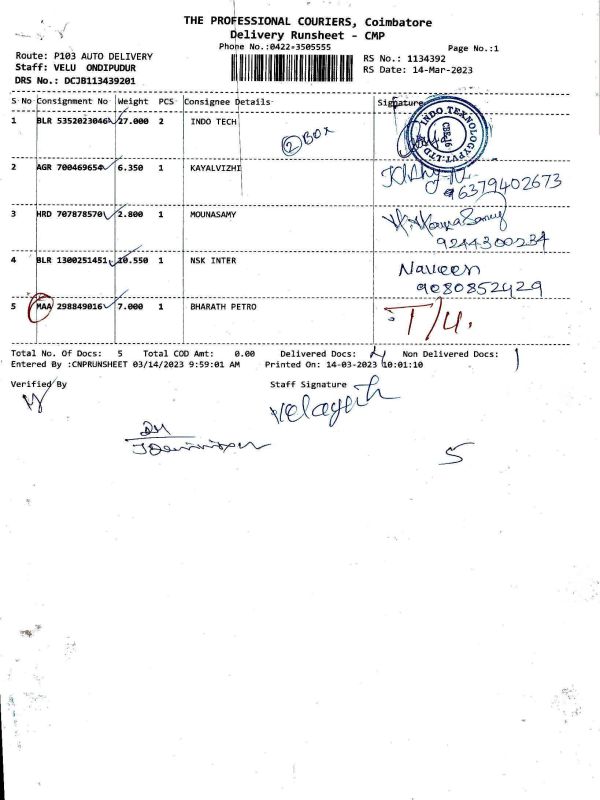 THE PROFESSIONAL COURIERS, Coimbatore
Delivery Runsheet - CMP
Phone No.:0422-3505555
Page No.:1
Route: P103 AUTO DELIVERY
RS No.: 1134392
Staff: VELU ONDIPUDUR
RS Date: 14-Mar-2023
DRS No.: DCJB113439201
S No Consignment No Weight PCS Consignee Details Signature
1 BLR 5352023046 27.000 2 INDO TECH
2 BOX
INDO TEXNOLOGI PVT. LTD
CBE-16
2 AGR 700469654 6.350 1 KAYALVIZHI
96379402673
3 HRD 707878570 2.800 1 MOUNASAMY
9244300234
4 BLR 1300251451 10.550 1 NSK INTER Naveen
9080852429
5 MAA 298849016 7.000 1 BHARATH PETRO T/U.
Total No. Of Docs: 5 Total COD Amt: 0.00 Delivered Docs: 4 Non Delivered Docs: 1
Entered By :CNPRUNSHEET 03/14/2023 9:59:01 AM Printed On: 14-03-2023 10:01:10
Verified By Staff Signature
5